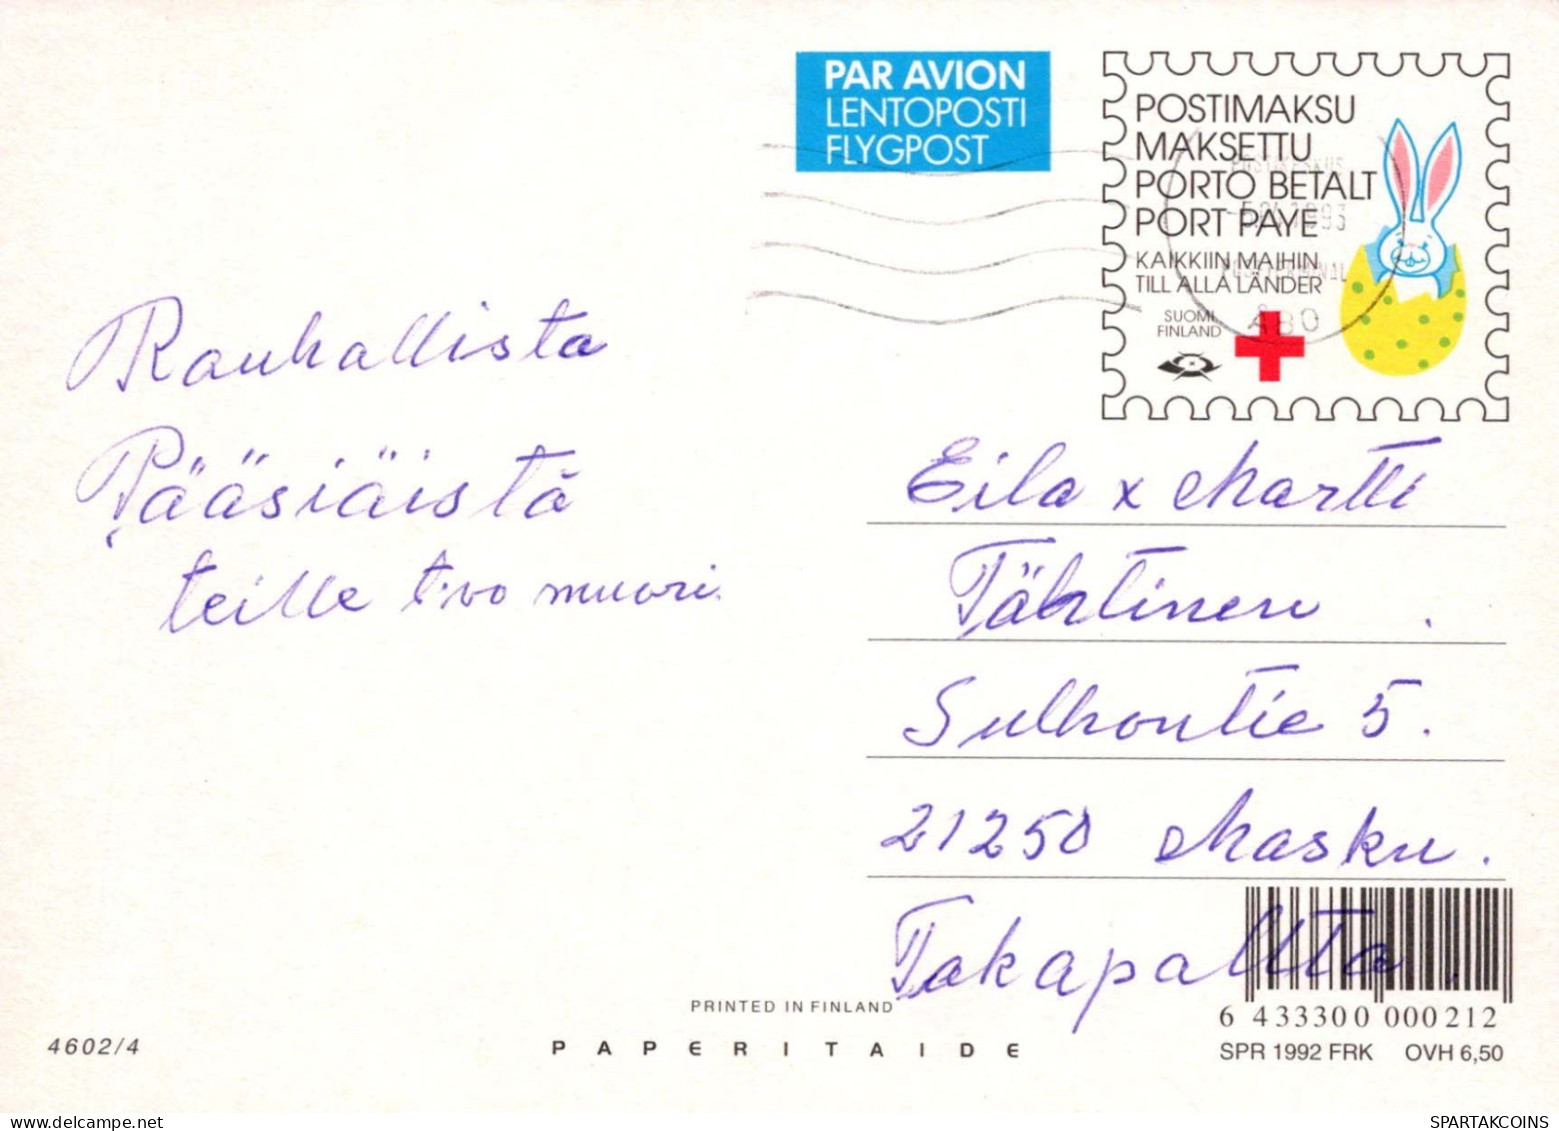 PAR AVION
LENTOPOSTI
FLYGPOST
POSTIMAKSU
MAKSETTU
PORTO BETALT
PORT PAYE
KAIKKIIN MAIHIN
TILL ALLA LÄNDER
SUOMI
FINLAND
ÅBO
Rauhallista
Pääsiäistä
teille t.vo muori.
Eila x Martti
Tähtinen .
Sulkontie 5.
21250 Masku.
Takapaltta.
PRINTED IN FINLAND
4602/4
PAPERITAIDE
6 433300 000212
SPR 1992 FRK OVH 6,50
www.delcampe.net
SPARTAKCOINS